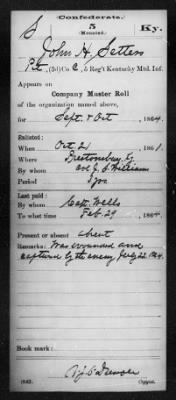 Confederate.
5
(Mounted.)
Ky.
S
John H. Setters
Pt, (3d) Co. C, 5 Reg't Kentucky Mtd. Inf.
Appears on
Company Muster Roll
of the organization named above,
for Sept. & Oct, 1864.
Enlisted:
When Oct. 21, 1861.
Where Prestonsburg, Ky
By whom Col. J. S. Williams
Period 3 yrs
Last paid:
By whom Capt. Wells
To what time Feb. 29, 1864.
Present or absent absent
Remarks: Was wounded and
captured by the enemy July 22 1864.
Book mark:
(642)
Copyist.